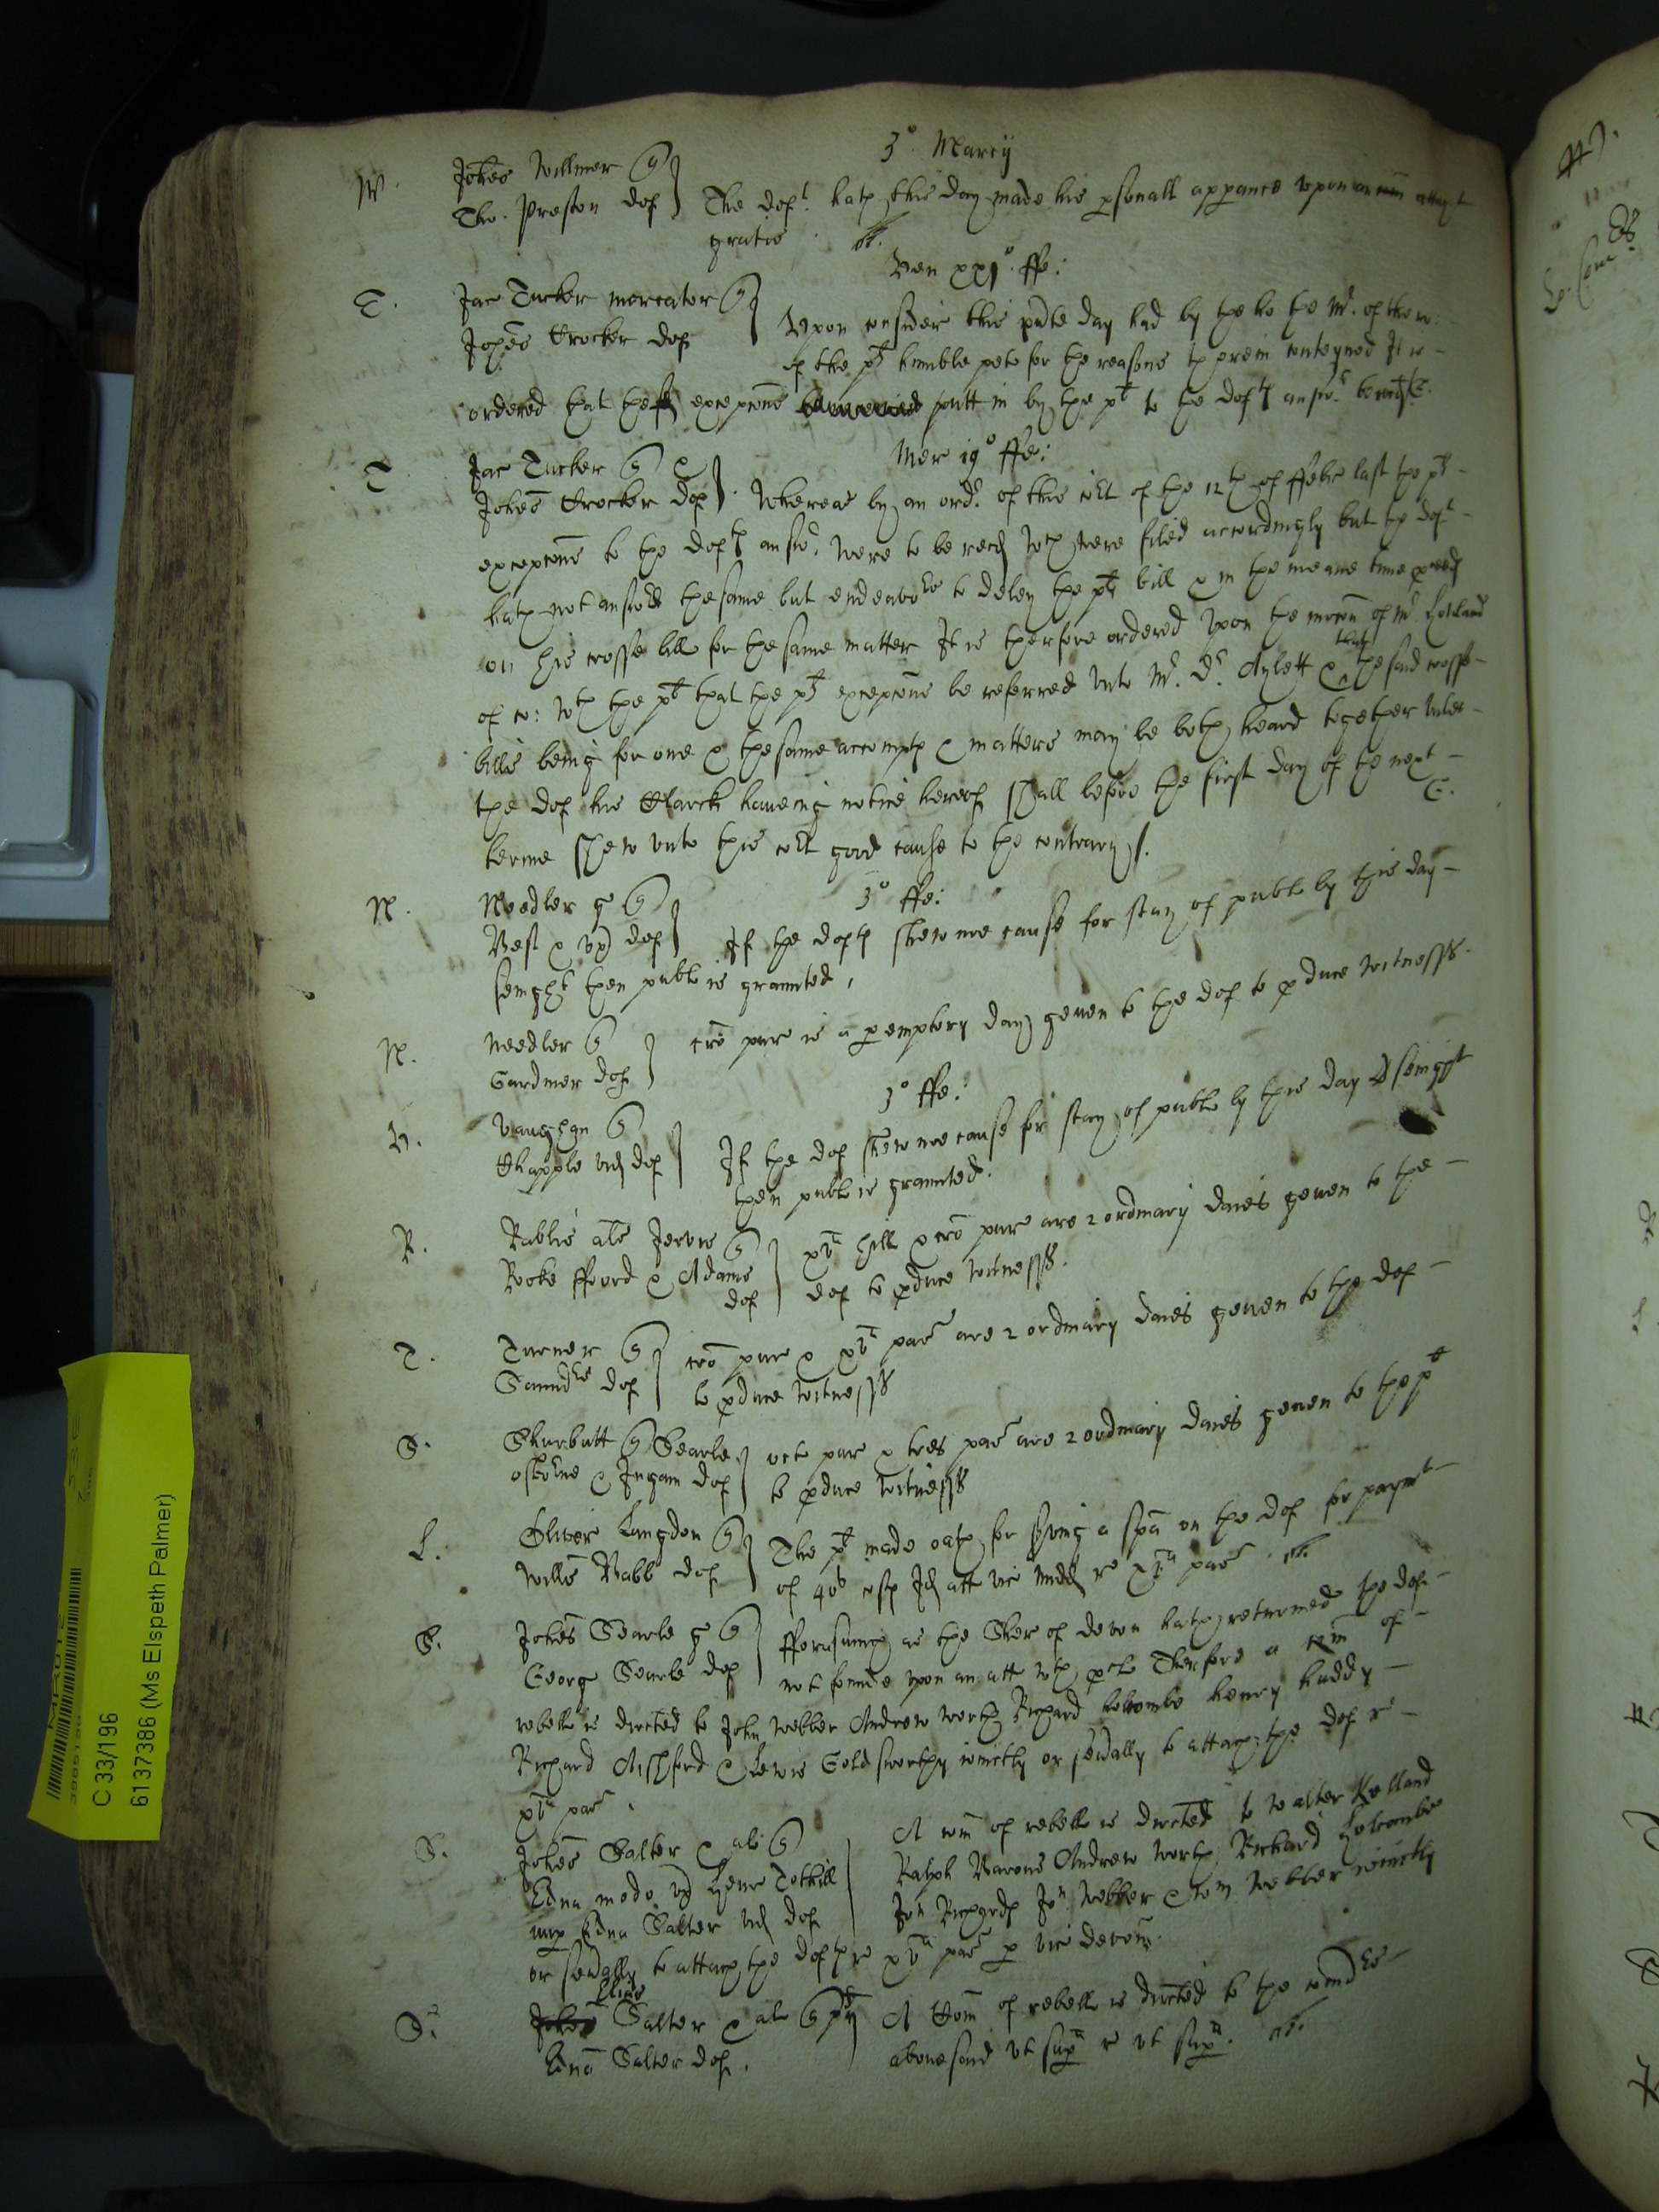 3° Marcij
W. Johes Willmer q
Tho. Preston def The deft. hath this day made his psonall appance upon an attach
gratis
Ven xxj° ffe:
T. Jac Tucker mercator q
Johes Crocker def Upon consider this pnte day had by the ho the Mr. of the ro:
of the plt humble peto for the reasons therein conteyned It is
ordered that the excepcons putt in by the plt to the defts answr. be
Mer 19° ffe:
T Jac Tucker q
Johes Crocker def Whereas by an ordr. of this cort of the 12th of ffebr last the plt
excepcons to the defts answr. were to be recd wch were filed accordingly but the deft
hath not answed the same but endeavors to deley the plts bill & in the meane time pceed
on his crosse bill for the same matter It is therfore ordered upon the mocon of Mr Holland
of co: wth the plt that the plts excepcons be referred unto Mr. Dr. Aylett & that the said crosse
bills being for one & the same accompts & matters may be both heard together unles
the def his Clarck haveing notice hereof shall before the first day of the next
terme shew unto this cort good cause to the contrary
N. Needler q
3° ffe:
West & ux def If the defts shew noe cause for stay of publc by this day
senight then publc is graunted
N. Needler q cro pur is a pemptory day geven to the def to pduce witnesses.
Gardiner def
3° ffe:
V. Vaughan q
Chapple vid def If the def shew noe cause for stay of publc by this day senight
then publc is graunted.
R. als Jervis q xva hill & cro pur are 2 ordinary daies geven to the
Rooke fford & Adams def def to pduce witnesses.
T. Turner q cro pur & xva pas are 2 ordinary daies geven to the def
Saunders def to pduce witnesses
S. Shurbutt q Searle oct pur & tres pas are 2 ordinary daies geven to the plt
osborne & Ingam def to pduce witnesses
L. Oliver Langdon q The plt made oath for sving a spa on the def for paymt
Willms Babb def of 40s costs Id att vic re xva pas
S. Johes Searle g q fforasmuch as the Sher of devon hath retorned the def
Georg Searle def not founde upon an att wth pcla Therfore a com of
rebellc is directed to John Webber Andrew worth Richard holcombe henry huddy
Richard Aishford & Lewis Goldsworthy iointly or sevally to attach the def re
xva pas
S. Johes Salter & al q A com of rebellc is directed to walter Kelland
Edna modo ux Henr Tothill Ralph Barons Andrew worth Richard Holcombe
nup Edna Salter vid def Jon Richards Jon. Webber & Tom webber iointly
or sevally to attach the defts re xva pas p vic devon
S. Elias
Johes Salter & al q A Com of rebellc is directed to the comdrs
Edna Salter def. abovesaid ut supa re ut supa.
C 33/196
6137386 (Ms Elspeth Palmer)